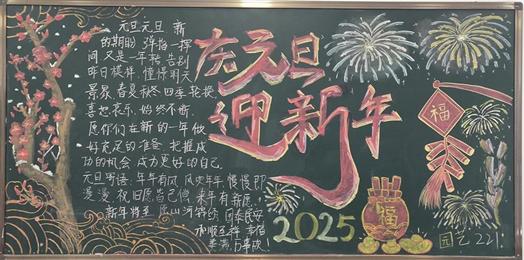 庆元旦
迎新年
元旦元旦 新
的期盼 弹指一挥
间 又是一年 告别
昨日模样 憧憬明天
景象 春夏秋冬 四季轮换
喜怒哀乐 始终不断
愿你们在新的一年做
好充足的准备 把握成
功的机会 成为更好的自己
元旦寄语：年年有风 风吹年年 慢慢即
漫漫 祝旧愿皆已偿 来年有新愿
新年将至 愿山河锦绣 国泰民安
和顺致祥 幸福
美满 万事胜
2025
福
福
园艺221